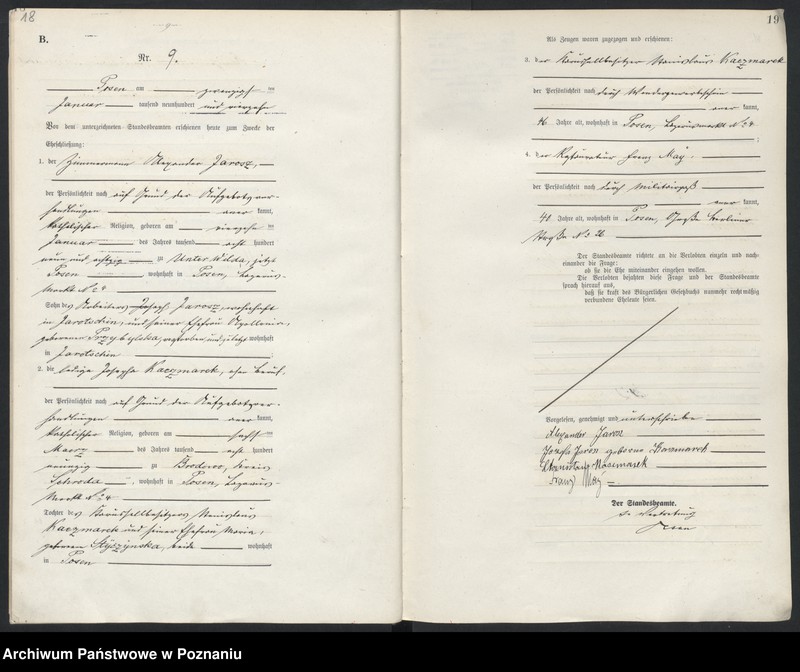 18
B.
Nr. 9.
Posen am zwanzigsten
Januar tausend neunhundert und vierzehn
Von dem unterzeichneten Standesbeamten erschienen heute zum Zwecke der
Eheschließung:
1. der Zimmermann Alexander Jarosz,
der Persönlichkeit nach auf Grund der Aufgebotsver-
handlungen kannt,
katholischer Religion, geboren am
Januar des Jahres tausend acht hundert
neun und achtzig zu Unter Wilda, jetzt
Posen, wohnhaft in Posen, Lazarus-
markt No 4
Sohn des Arbeiters Joseph Jarosz, wohnhaft
in Jarotschin, und seiner Ehefrau
geborenen Przybylska, verstorben und zuletzt wohnhaft
in Jarotschin
2. die ledige Josepha Kaczmarek, ohne Beruf,
der Persönlichkeit nach auf Grund der Aufgebotsver-
handlungen kannt,
katholischer Religion, geboren am
Maerz des Jahres tausend acht hundert
neunzig zu Brodowo, Kreis
Schroda, wohnhaft in Posen, Lazarus-
markt No 4
Tochter des Karussellbesitzers Stanislaus
Kaczmarek und seiner Ehefrau Maria,
geborenen beide wohnhaft
in Posen
19
Als Zeugen waren zugezogen und erschienen:
3. der Karussellbesitzer Stanislaus Kaczmarek
der Persönlichkeit nach durch Wandergewerbeschein
aner kannt,
46 Jahre alt, wohnhaft in Posen, Lazarusmarkt No 4;
4. der Franz May,
der Persönlichkeit nach durch Militärpaß
aner kannt,
40 Jahre alt, wohnhaft in Posen, Große Berliner
Straße No
Der Standesbeamte richtete an die Verlobten einzeln und nach-
einander die Frage:
ob sie die Ehe miteinander eingehen wollen.
Die Verlobten bejahten diese Frage und der Standesbeamte
sprach hierauf aus,
daß sie kraft des Bürgerlichen Gesetzbuchs nunmehr rechtmäßig
verbundene Eheleute seien.
Vorgelesen, genehmigt und unterschrieben
Alexander Jarosz
Jozefa Jarosz geborene Kaczmarek
Stanislaus Kaczmarek
Franz May
Der Standesbeamte.
In Vertretung
Archiwum Państwowe w Poznaniu